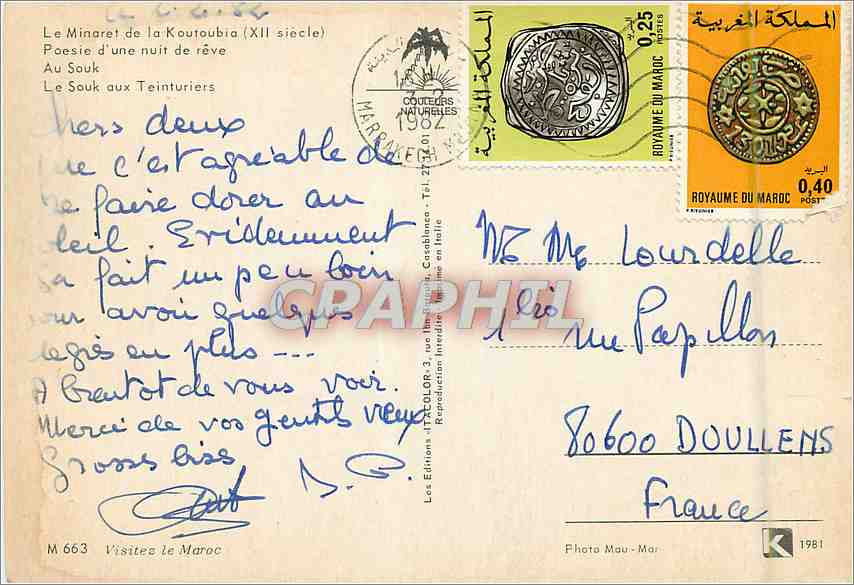 Le Minaret de la Koutoubia (XII siècle)
Poesie d'une nuit de rêve
Au Souk
Le Souk aux Teinturiers
COULEURS
NATURELLES
1982
MARRAKECH
المملكة المغربية
البريد
0,25
POSTES
ROYAUME DU MAROC
المملكة المغربية
البريد
0,40
POSTES
ROYAUME DU MAROC
hers deux
ue c'est agréable de
e faire dorer au
leil. Evidemment
a fait un peu loin
ur avoir quelques
degrés en plus ---
A bientot de vous voir.
Merci de vos gentils vœux
Grosses bises
Les Editions «ITACOLOR» 3, rue Ibn Casablanca - Tél. 27.14.01
Reproduction Interdite Imprimé en Italie
CPARPHIL
M Me Lourdelle
1 bis rue Papillon
80600 DOULLENS
France
M 663 Visitez le Maroc
Photo Mau - Mar
K 1981